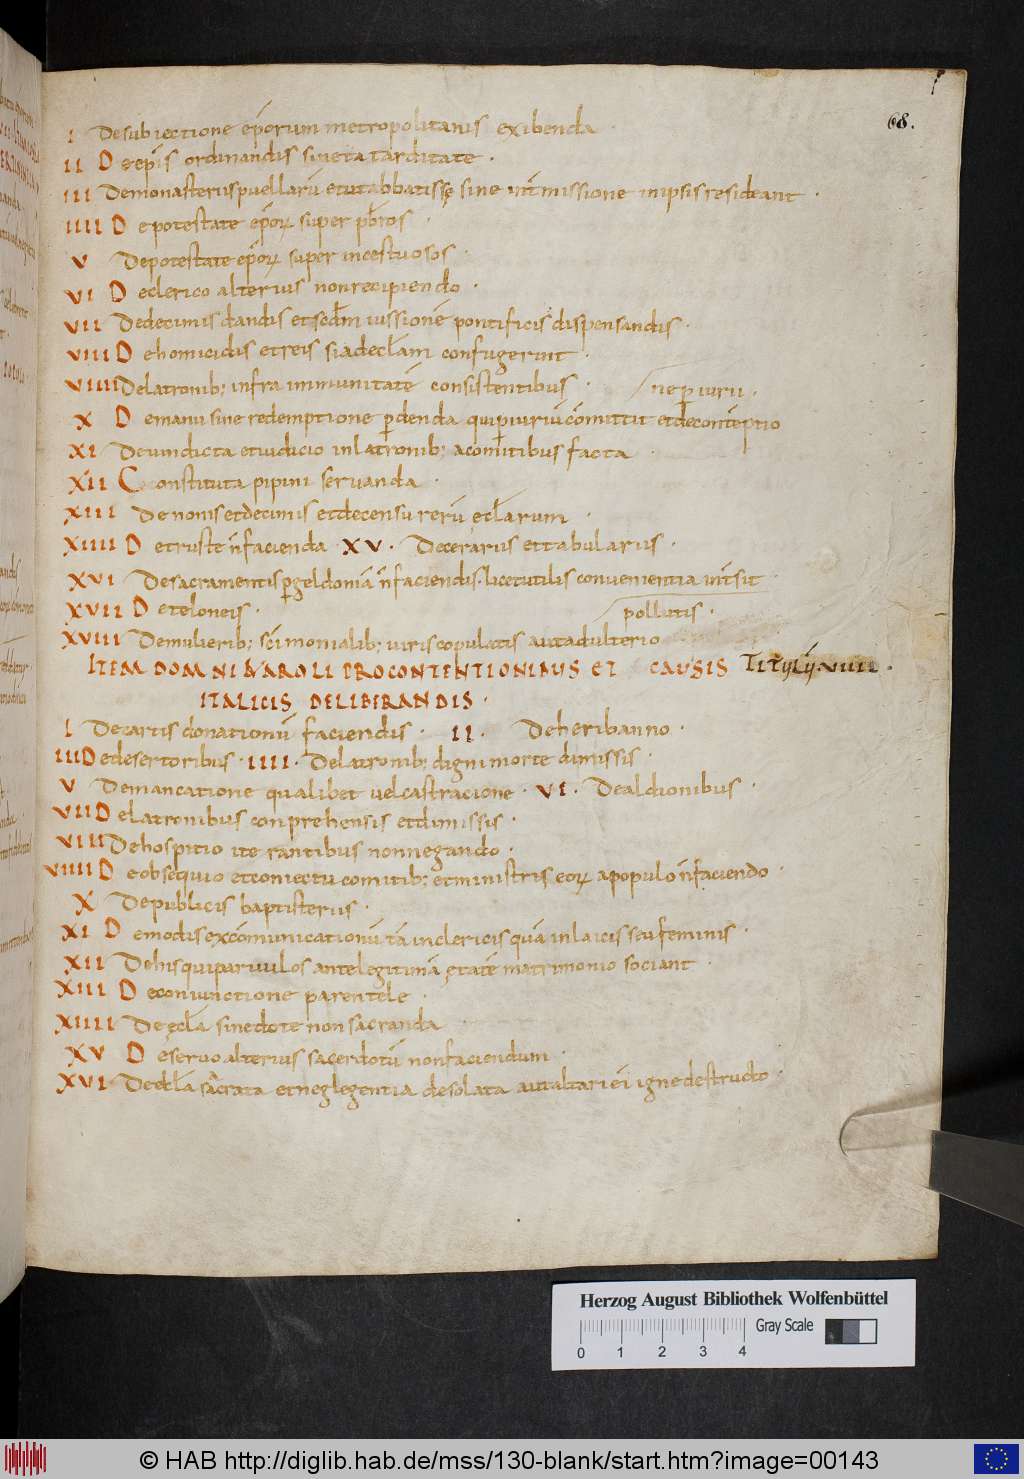 68.
I De subiectione ep̄orum metropolitanis exibenda
II De ep̄is ordinandis sine ta tarditate .
III De monasteriis puellarū et ut abbatissę sine int̄missione in ipsis resideant .
IIII De potestate ep̄orꝝ super pb̄ros .
V De potestate ep̄orꝝ super incestuosos .
VI De clerico alterius non recipiendo .
VII De decimis dandis et scd̄m iussionē pontificis dispensandis .
VIII De homicidis et reis si ad ecl̄am confugerint .
VIIII De latronib; infra immunitatē consistentibus .
ne piurii .
X De manu sine redemptione pdenda qui piuriū cōmittit et de contēptio
XI De uindicta et iudicio in latronib; a comitibus facta .
XII Constituta pipini seruanda .
XIII De nonis et decimis et de censu rerū ecl̄arum .
XIIII De truste n̄ facienda . XV . De cerariis et tabulariis .
XVI De sacramentis p geldoniā n̄ faciendis . licet utilis conuenientia int̄ sit .
XVII De teloneis .
pollutis .
XVIII De mulierib; sc̄imonialib; uiris copulatis aut adulterio
ITEM DOMNI KAROLI PRO CONTENTIONIBUS ET CAUSIS TITULI XVIII .
ITALICIS DELIBERANDIS .
I De cartis donationū faciendis . II . De heribanno .
III De desertoribus . IIII . De latronib; digni morte dimissis .
V De mancatione qualibet uel castracione . VI . De aldionibus .
VII De latronibus conprehensis et dimissis .
VIII De hospitio iterantibus non negando .
VIIII De obsequio et coniectu comitib; et ministris eorꝝ a populo n̄ faciendo .
X De publicis baptisteriis .
XI De modis excōmunicationū tā in clericis quā in laicis seu feminis .
XII De his qui paruulos ante legitimā ętatē matrimonio sociant .
XIII De coniunctione parentele .
XIIII De ęcl̄a sine dote non sacranda
XV De seruo alterius sacerdotū non faciendum .
XVI De ecl̄a sacrata et neglegentia desolata aut altari ei igne destructo .
Herzog August Bibliothek Wolfenbüttel
Gray Scale
0 1 2 3 4
© HAB http://diglib.hab.de/mss/130-blank/start.htm?image=00143